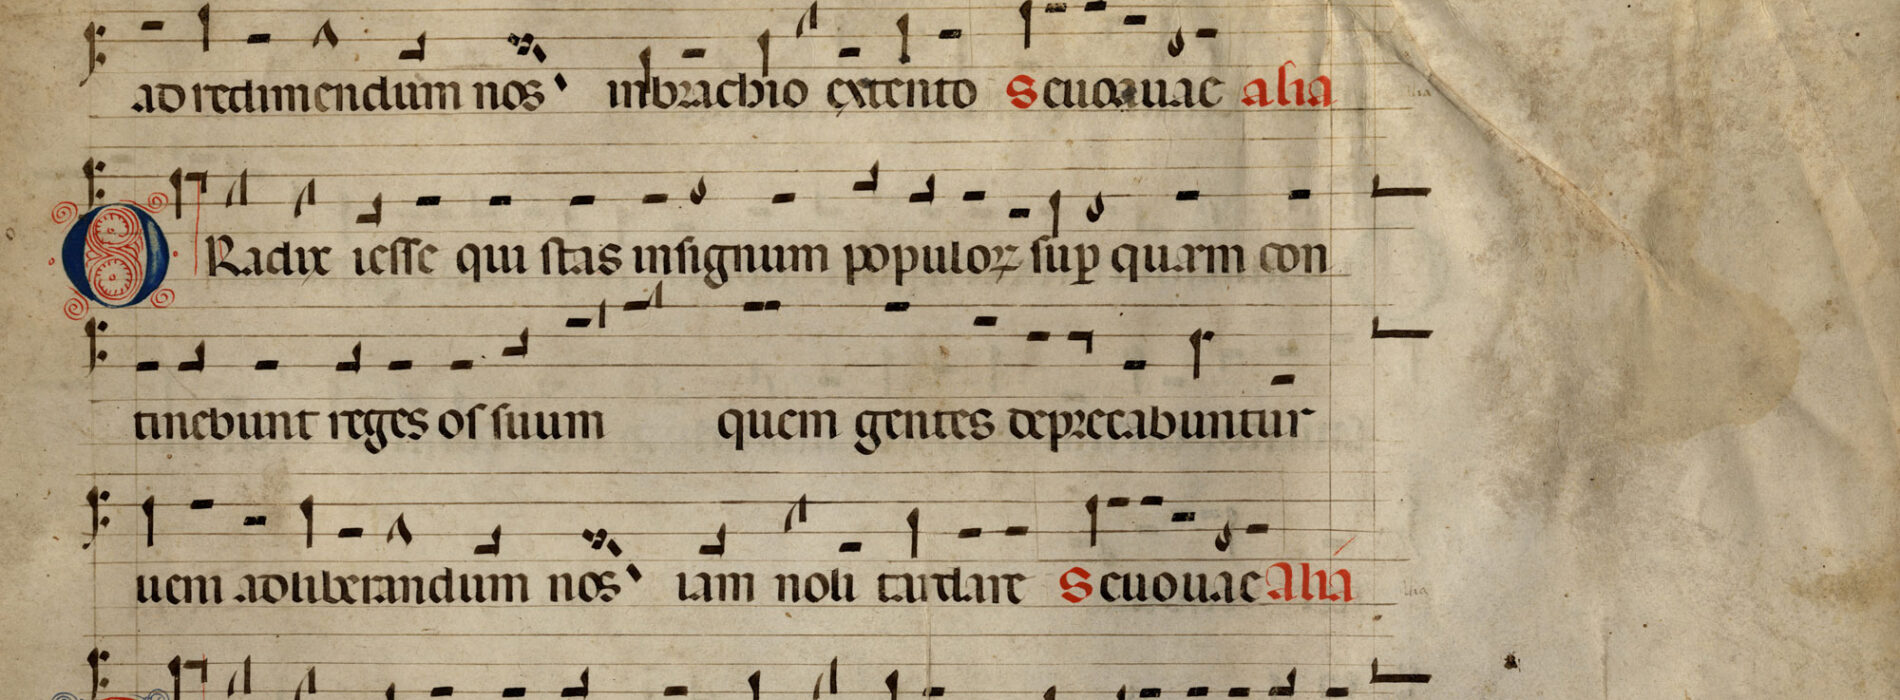 ad redimendum nos inbrachio extento Seuouae alia
O Radix iesse qui stas insignum populoꝝ sup quem con
tinebunt reges os suum quem gentes deprecabuntur
uem adliberandum nos iam noli tardare Seuouae Alia